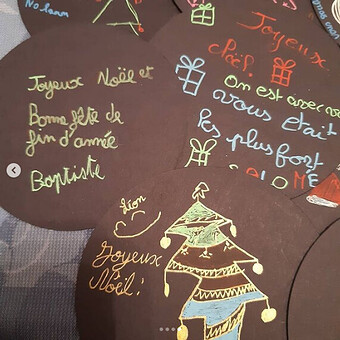 Noham
Joyeux Noël et
Bonne fête de
fin d'année
Baptiste
Joyeux
Noël.
On est avec
vous était
les plus fort
Léon
Joyeux
Noël!